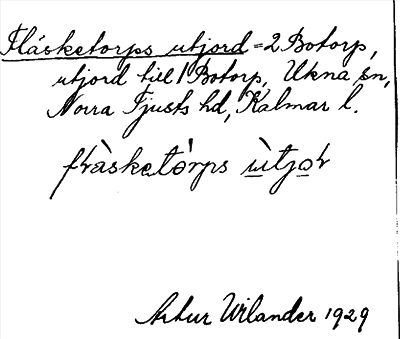 Fläsketorps utjord = 2 Botorp,
utjord till 1 Botorp, Ukna sn,
Norra Tjusts hd, Kalmar l.
fɽàsketórps ùtjoɽ
Artur Wilander 1929